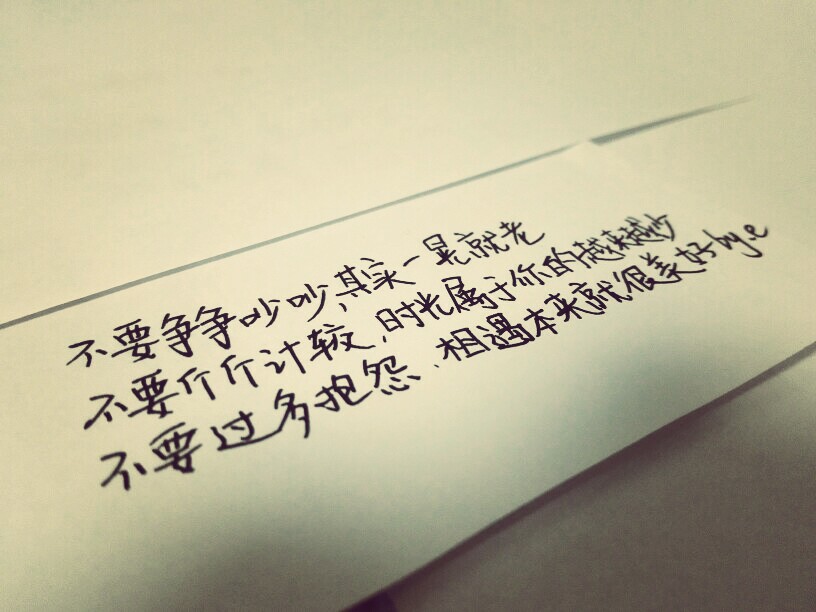 不要争争吵吵,其实一晃就老
不要个个计较,时光属于你的越来越少
不要过多抱怨、相遇本来就很美好 by.e